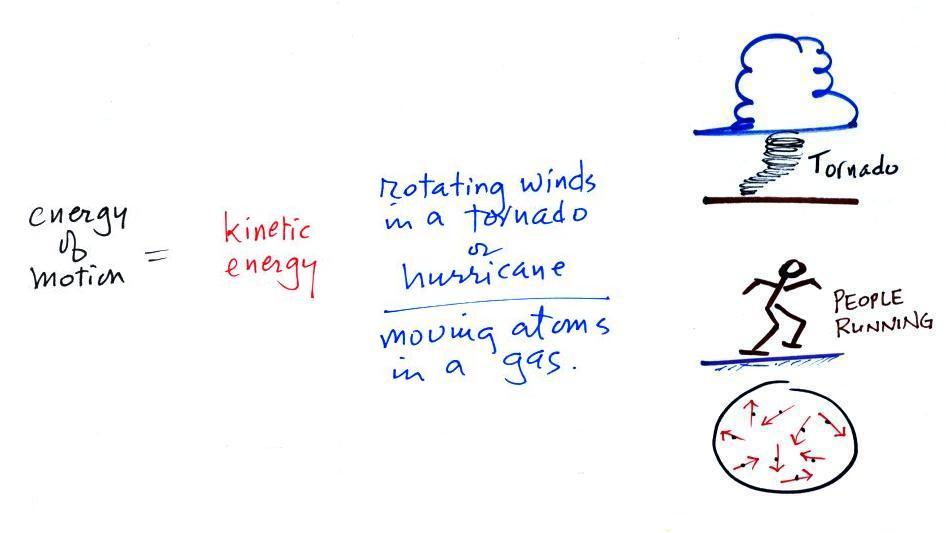 energy
of
motion
=
kinetic
energy
rotating winds
in a tornado
or
hurricane
moving atoms
in a gas.
Tornado
PEOPLE
RUNNING